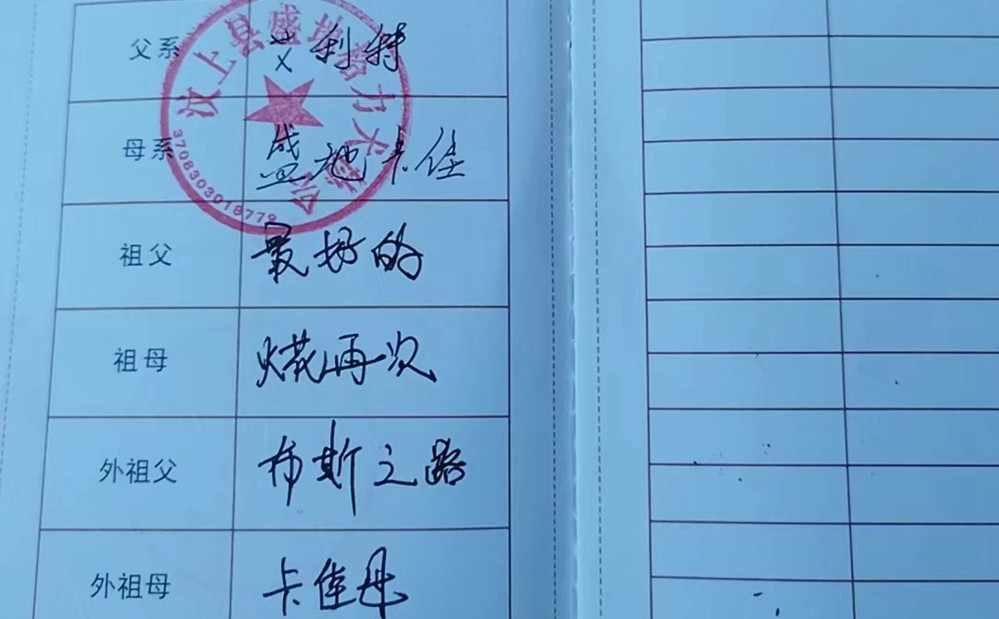 父系 艾利特
母系 盛地卡佳
祖父 最好的
祖母 火花再次
外祖父 布斯之路
外祖母 卡佳母
汶上县盛地格力犬
3708303018779